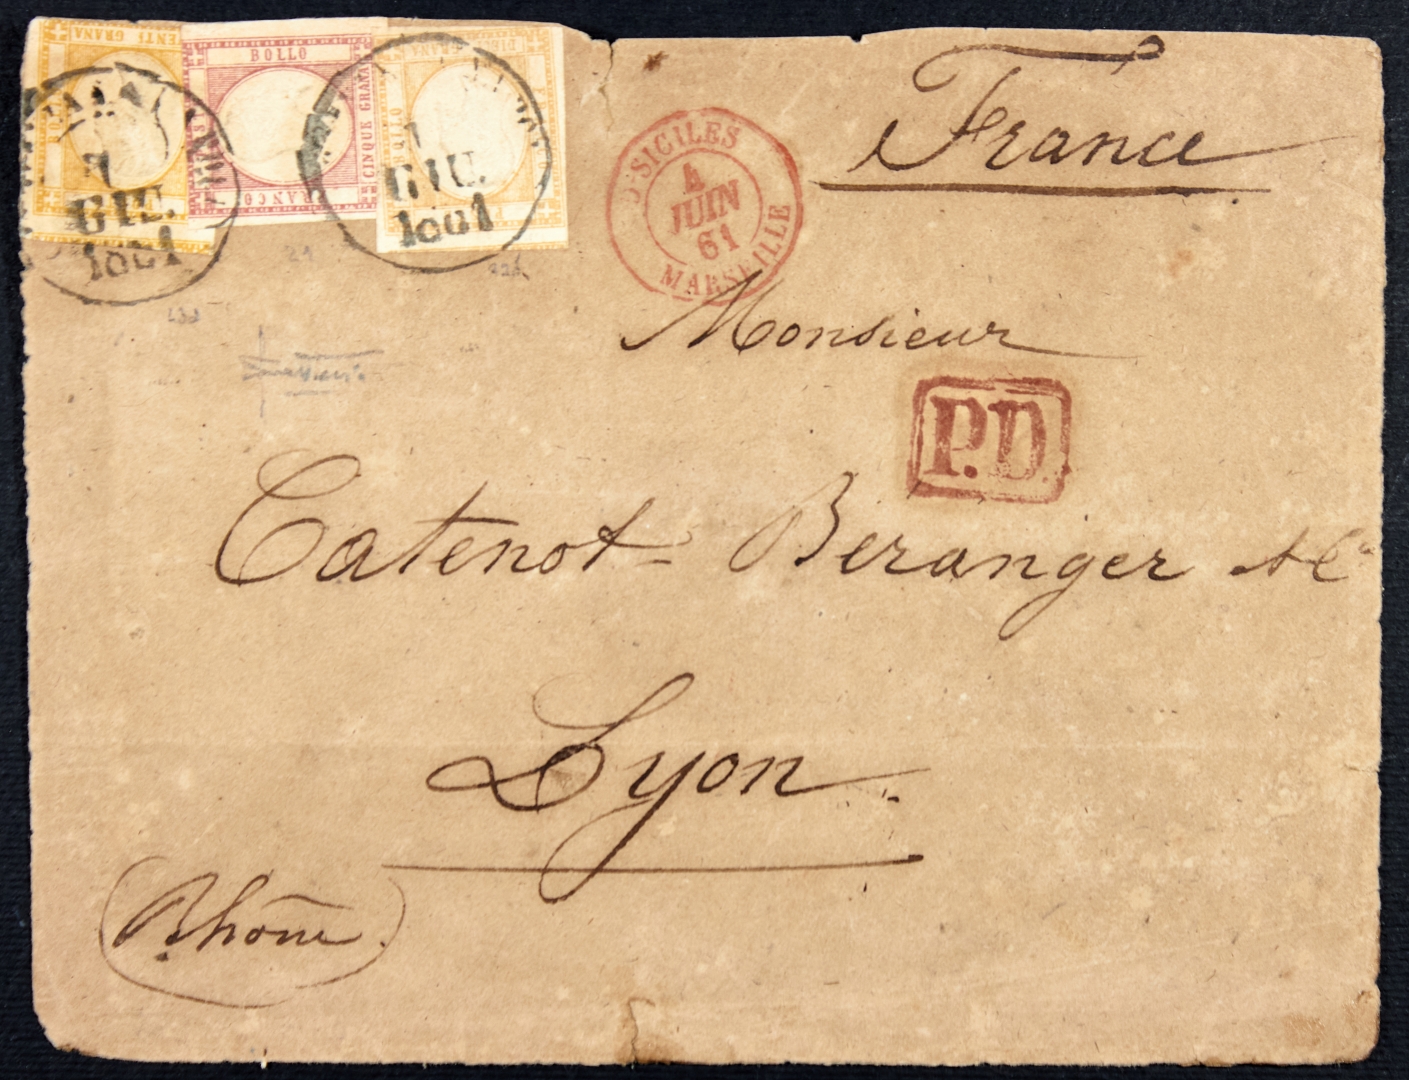 ENTI GRANA
BOLLO
CINQUE GRANA
FRANCO
BOLLO
GIU.
1861
1
GIU.
1861
SICILES
4
JUIN
61
MARSEILLE
France
Monsieur
P.D.
Catenot Béranger
Lyon
Rhône